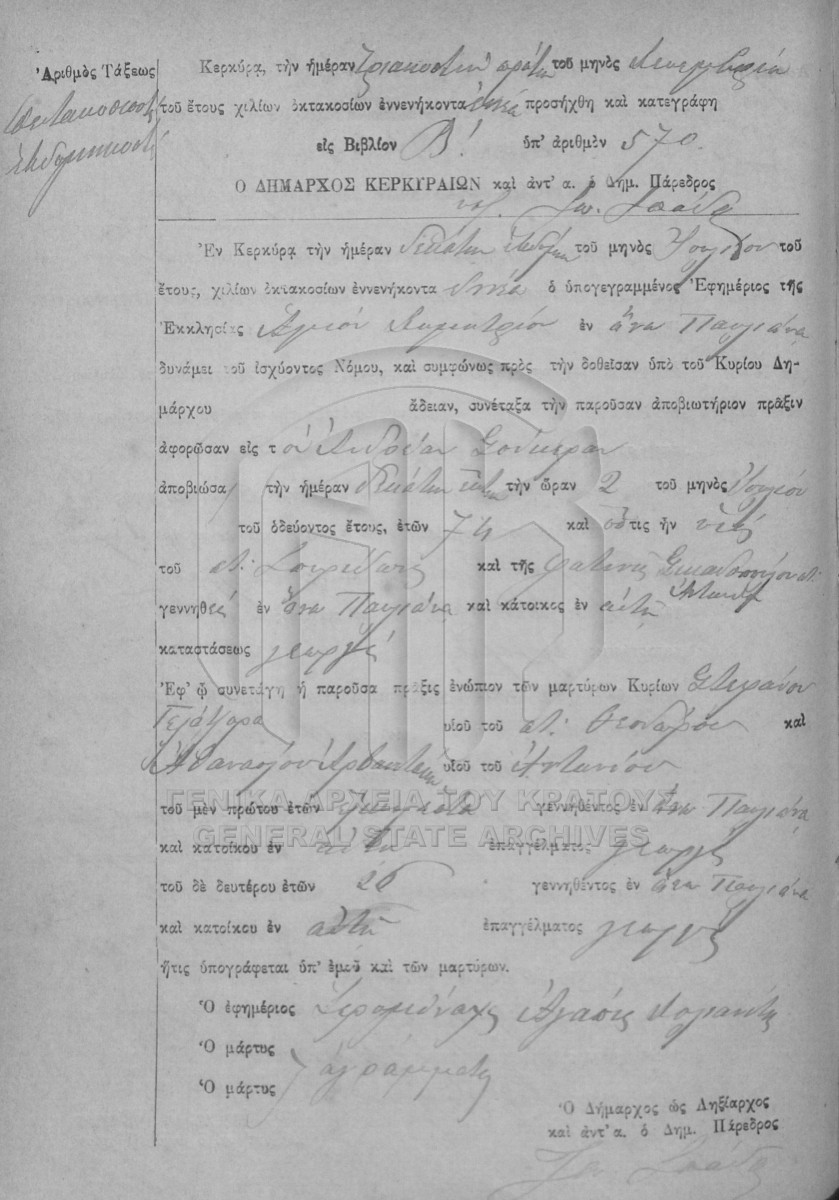 Ἀριθμὸς Τάξεως
Κερκύρα, τὴν ἡμέραν τριακοστὴν πρώτην τοῦ μηνὸς
τοῦ ἔτους χιλίων ὀκτακοσίων ἐννενήκοντα ἐννέα προσήχθη καὶ κατεγράφη
εἰς Βιβλίον Β! ὑπ' ἀριθμὸν 570.
Ὁ ΔΗΜΑΡΧΟΣ ΚΕΡΚΥΡΑΙΩΝ καὶ ἀντ' α. ὁ Δημ. Πάρεδρος
Ἐν Κερκύρᾳ τὴν ἡμέραν δεκάτην ἑβδόμην τοῦ μηνὸς Ἰουλίου τοῦ
ἔτους, χιλίων ὀκτακοσίων ἐννενήκοντα ἐννέα ὁ ὑπογεγραμμένος Ἐφημέριος τῆς
Ἐκκλησίας Ἁγίου Δημητρίου ἐν ἄνω Παυλιάνα
δυνάμει τοῦ ἰσχύοντος Νόμου, καὶ συμφώνως πρὸς τὴν δοθεῖσαν ὑπὸ τοῦ Κυρίου Δη-
μάρχου ἄδειαν, συνέταξα τὴν παροῦσαν ἀποβιωτήριον πρᾶξιν
ἀφορῶσαν εἰς τὸν Ἀνδρέαν
ἀποβιώσα τὴν ἡμέραν δεκάτην ἕκτην τὴν ὥραν 2 τοῦ μηνὸς Ἰουλίου
τοῦ ὁδεύοντος ἔτους, ἐτῶν 74 καὶ ὅστις ἦν υἱὸς
τοῦ ποτ: Σπυρίδωνος καὶ τῆς Φωτεινῆς
γεννηθεὶς ἐν ἄνω Παυλιάνα καὶ κάτοικος ἐν αὐτῇ
καταστάσεως γεωργὸς
Ἐφ' ᾧ συνετάγη ἡ παροῦσα πρᾶξις ἐνώπιον τῶν μαρτύρων Κυρίων Στεφάνου
υἱοῦ τοῦ ποτ: Θεοδώρου καὶ
Ἀθανασίου υἱοῦ τοῦ Ἀντωνίου
ΓΕΝΙΚΑ ΑΡΧΕΙΑ ΤΟΥ ΚΡΑΤΟΥΣ
τοῦ μὲν πρώτου ἐτῶν γεννηθέντος ἐν ἄνω Παυλιάνα
GENERAL STATE ARCHIVES
καὶ κατοίκου ἐν αὐτῇ ἐπαγγέλματος γεωργὸς
τοῦ δὲ δευτέρου ἐτῶν 26 γεννηθέντος ἐν ἄνω Παυλιάνα
καὶ κατοίκου ἐν αὐτῇ ἐπαγγέλματος γεωργὸς
ἥτις ὑπογράφεται ὑπ' ἐμοῦ καὶ τῶν μαρτύρων.
Ὁ ἐφημέριος Ἱερομόναχος
Ὁ μάρτυς
ἀγράμματοι
Ὁ μάρτυς
Ὁ Δήμαρχος ὡς Ληξίαρχος
καὶ ἀντ' α. ὁ Δημ. Πάρεδρος